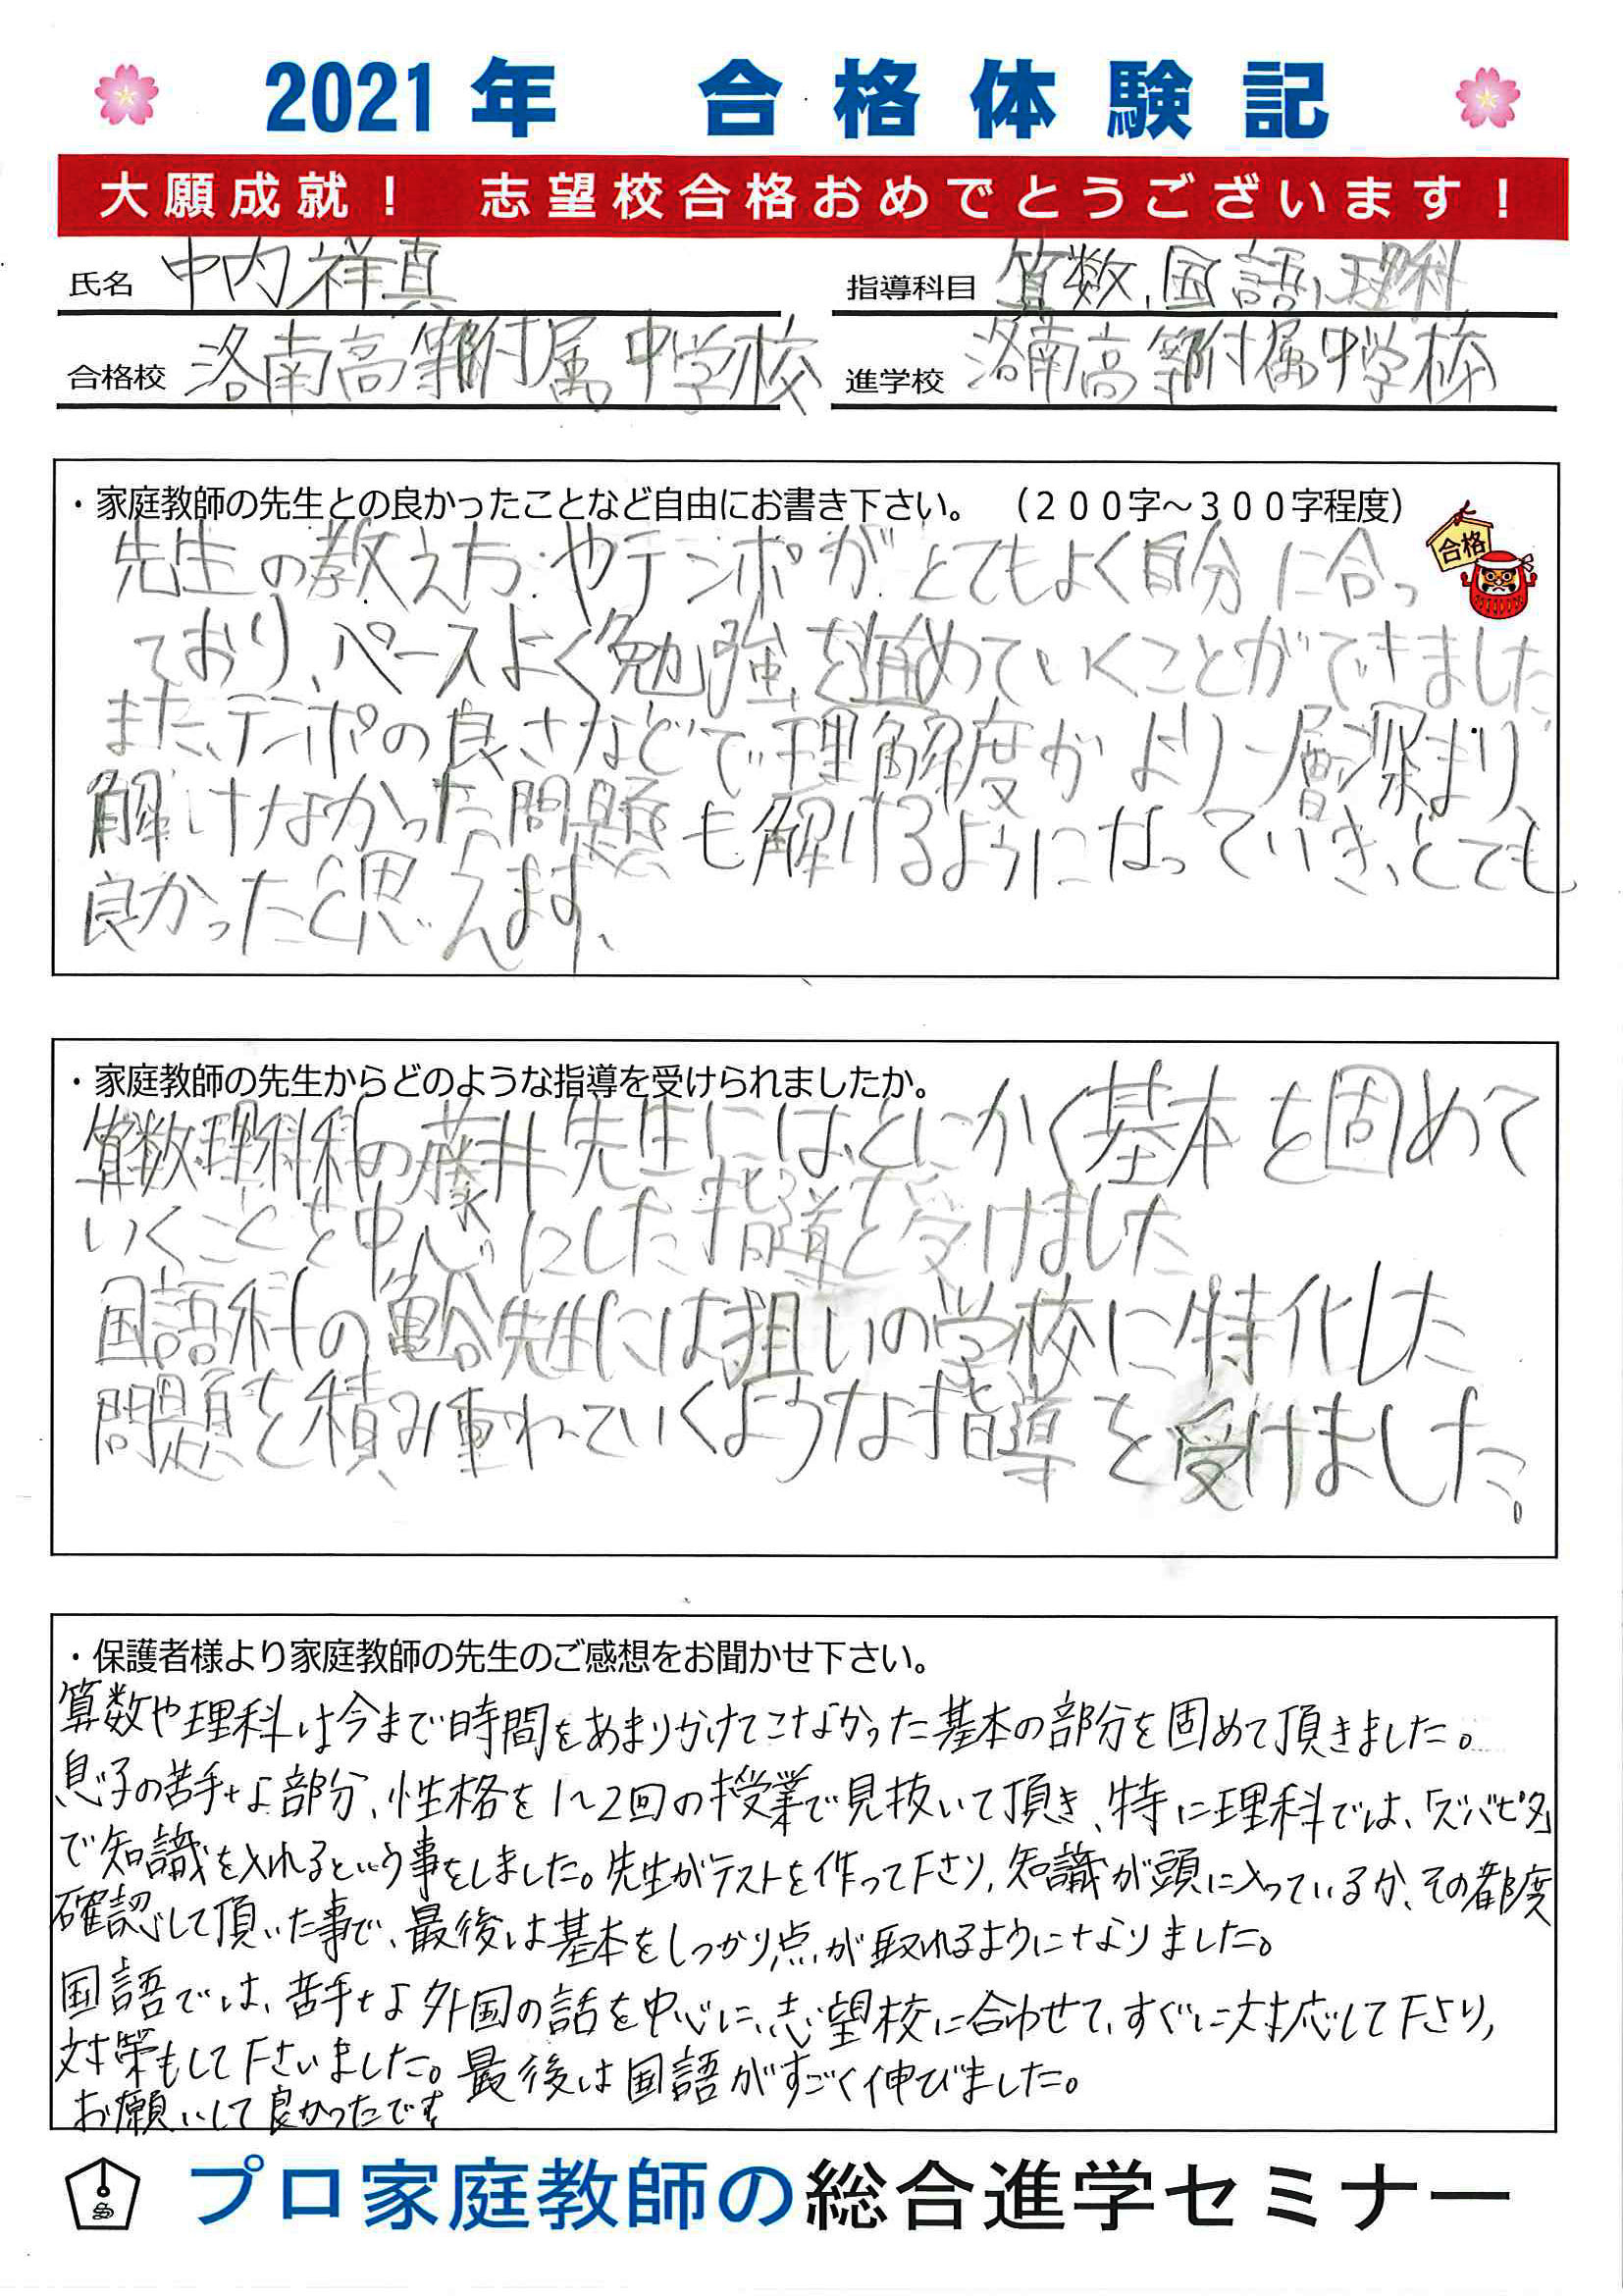 2021年 合格体験記
大願成就！ 志望校合格おめでとうございます！
氏名 中内祥真 指導科目 算数、国語、理科
合格校 洛南高等附属中学校 進学校 洛南高等附属中学校
・家庭教師の先生との良かったことなど自由にお書き下さい。（２００字～３００字程度）
合格
先生の教え方やテンポがとてもよく自分に合っ
ており、ペースよく勉強を進めていくことができました。
また、テンポの良さなどで理解度がより一層深まり、
解けなかった問題も解けるようになっていき、とても
良かったと思えます、
・家庭教師の先生からどのような指導を受けられましたか。
算数、理科科の藤井先生には、とにかく基本を固めて
いくことを中心にした指導を受けました
国語科の先生には狙いの学校に特化した
問題を積み重ねていくような指導を受けました。
・保護者様より家庭教師の先生のご感想をお聞かせ下さい。
算数や理科は今まで時間をあまりかけてこなかった基本の部分を固めて頂きました。
息子の苦手な部分、性格を1～2回の授業で見抜いて頂き、特に理科では、「ズバピタ」
で知識を入れるという事をしました。先生がテストを作って下さり、知識が頭に入っているか、その都度
確認して頂いた事で、最後は基本をしっかり点が取れるようになりました。
国語では、苦手な外国の話を中心に、志望校に合わせて、すぐに対応して下さり、
対策もして下さいました。最後は国語がすごく伸びました。
お願いして良かったです
プロ家庭教師の総合進学セミナー